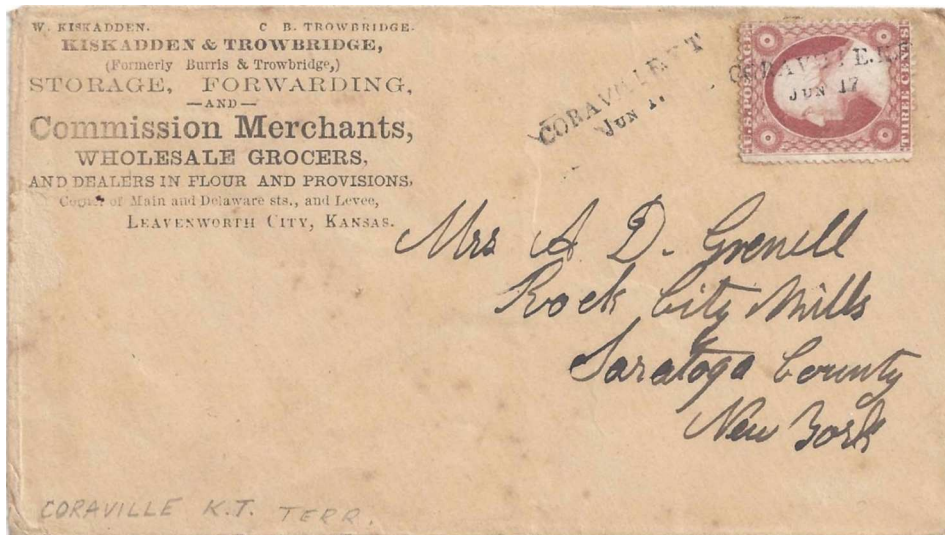 W. KISKADDEN. C. B. TROWBRIDGE.
KISKADDEN & TROWBRIDGE,
(Formerly Burris & Trowbridge,)
STORAGE, FORWARDING,
—AND—
Commission Merchants,
WHOLESALE GROCERS,
AND DEALERS IN FLOUR AND PROVISIONS,
Corner of Main and Delaware sts., and Levee,
LEAVENWORTH CITY, KANSAS.
CORAVILLE K T
JUN 17
U.S. POSTAGE
THREE CENTS
CORAVILLE K.T
JUN 17
Mrs A. D. Grenell
Rock City Mills
Saratoga County
New York
CORAVILLE K.T. TERR.